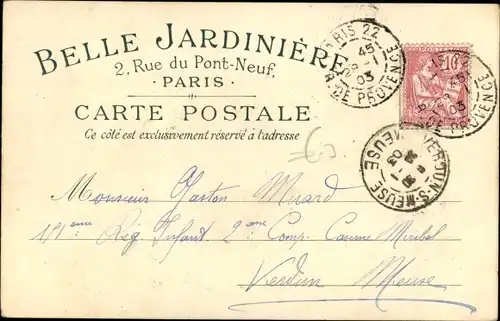 BELLE JARDINIÈRE
2, Rue du Pont-Neuf,
PARIS
CARTE POSTALE
Ce côté est exclusivement réservé à l'adresse
PARIS 22
R. DE PROVENCE
03
10
PARIS 22
R. DE PROVENCE
03
VERDUN-S-MEUSE
MEUSE
03
Monsieur Gaston
Reg Infant 2eme Comp. Caserne Miribel
Verdun Meuse